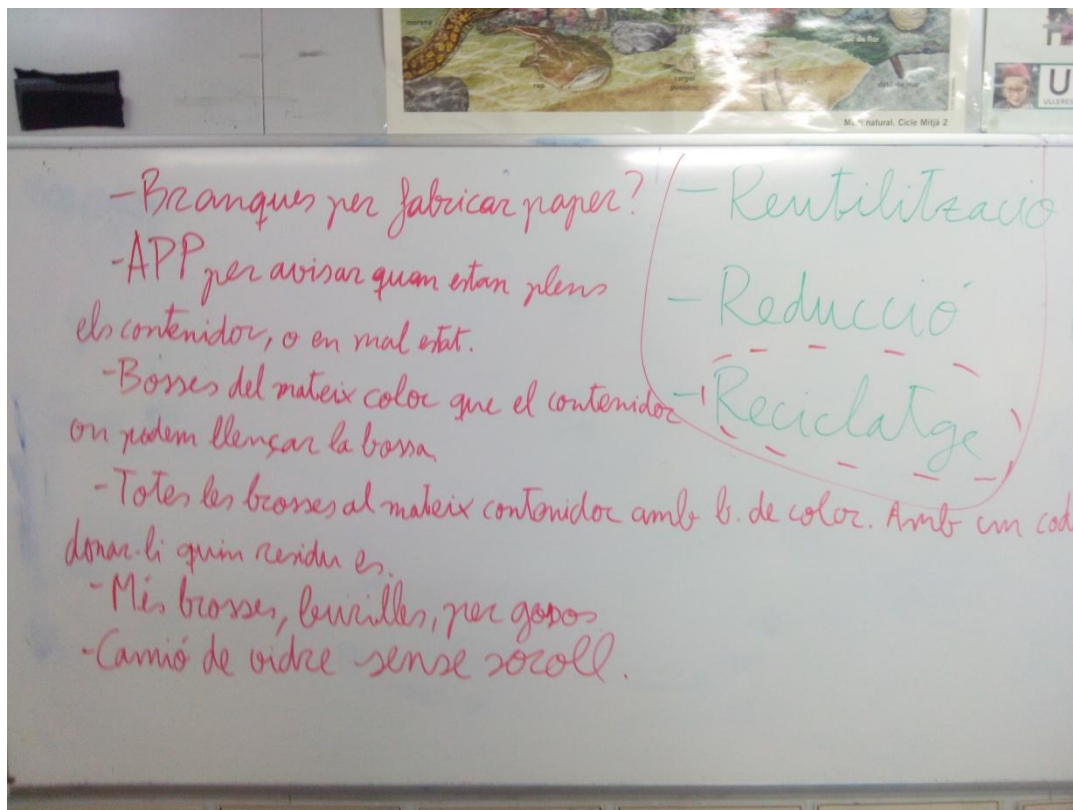 morena
rap
cargol
punxenc
Medi natural. Cicle Mitjà 2
U
ULLERES
-Branques per fabricar paper?
-APP per avisar quan estan plens
els contenidor, o en mal estat.
-Bosses del mateix color que el contenidor
on podem llençar la bossa.
-Totes les brosses al mateix contenidor amb b. de color. Amb un cod
donar-li quin residu es.
-Més brosses, burilles, per gossos
-Camió de vidre sense soroll.
-Reutilització
-Reducció
-Reciclatge